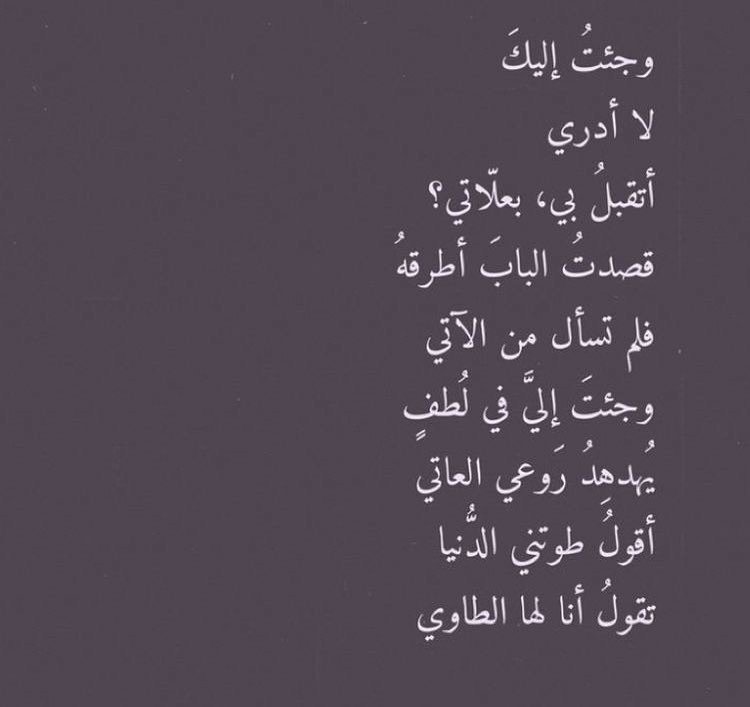 وجئتُ إليكَ
لا أدري
أتقبلُ بي، بعلّاتي؟
قصدتُ البابَ أطرقهُ
فلم تسأل من الآتي
وجئتَ إليَّ في لُطفٍ
يُهدهِدُ رَوعي العاتي
أقولُ طوتني الدُّنيا
تقولُ أنا لها الطاوي